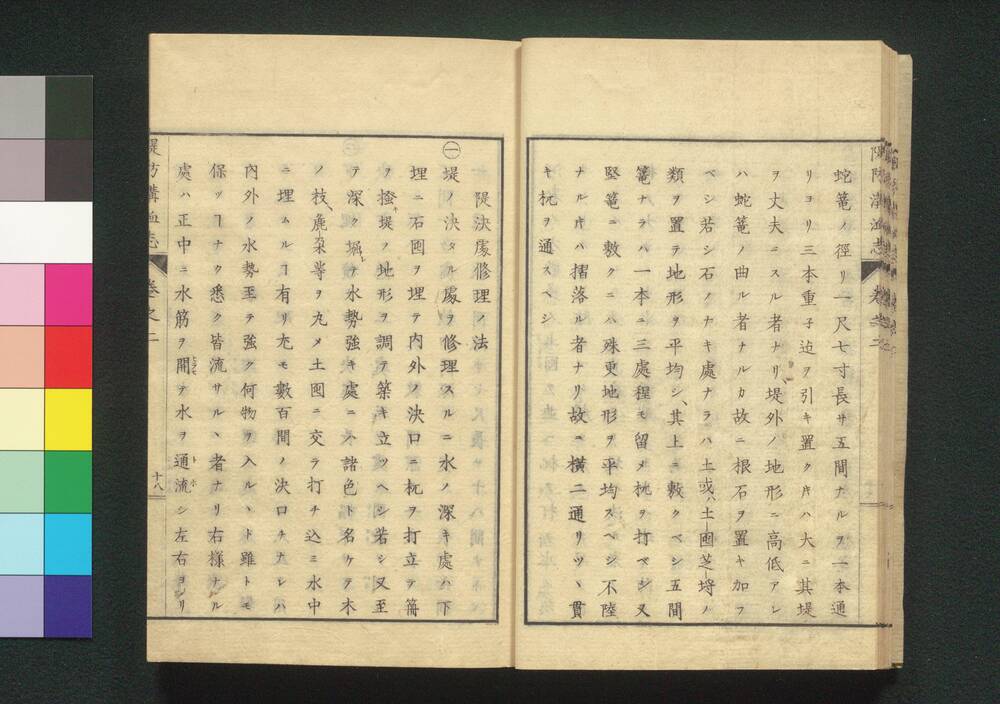 蛇篭ノ徑リ一尺七寸長サ五間ナルヲ一本通
リヨリ三本重子迠ヲ引キ置ク片ハ大ニ其堤
ヲ丈夫ニスル者ナリ堤外ノ地形ニ高低アレ
ハ蛇篭ノ曲ル者ナルカ故ニ根石ヲ置キ加フ
ベシ若シ石ノナキ處ナラハ土或ハ土圉芝塮ノ
類ヲ置テ地形ヲ平均シ其上ニ敷クベシ五間
篭ナラハ一本ニ三處程モ留メ杭ヲ打ベシ又
竪篭ニ敷クニハ殊更地形ヲ平均スベシ不陸
ナル片ハ摺落ル者ナリ故ニ横二通リツヽ貫
キ杭ヲ通スヘシ
隄決處修理ノ法
㊀堤ノ決タル處ヲ修理スルニ水ノ深キ處ハ下
埋ニ石囤ヲ埋テ内外ノ決口ニ杭ヲ打立テ篊
ヲ掻キ堤ノ地形ヲ調テ築キ立ツヘシ若シ又至
テ深ク堀レテ水勢強キ處ニハ諸色ト名ケテ木
ノ枝麁朶等ヲ丸メ土囤ニ交ヲ打チ込ミ水中
ニ埋ムルヿ有リ尤モ數百間ノ決口ナレハ
内外ノ水勢至テ強ク何物ヲ入ルヽト雖トモ
保ツヿナク悉ク皆流サルヽ者ナリ右樣ナル
處ハ正中ニ水筋ヲ開テ水ヲ通流シ左右ヨリ
堤防溝洫志
卷之二
十八